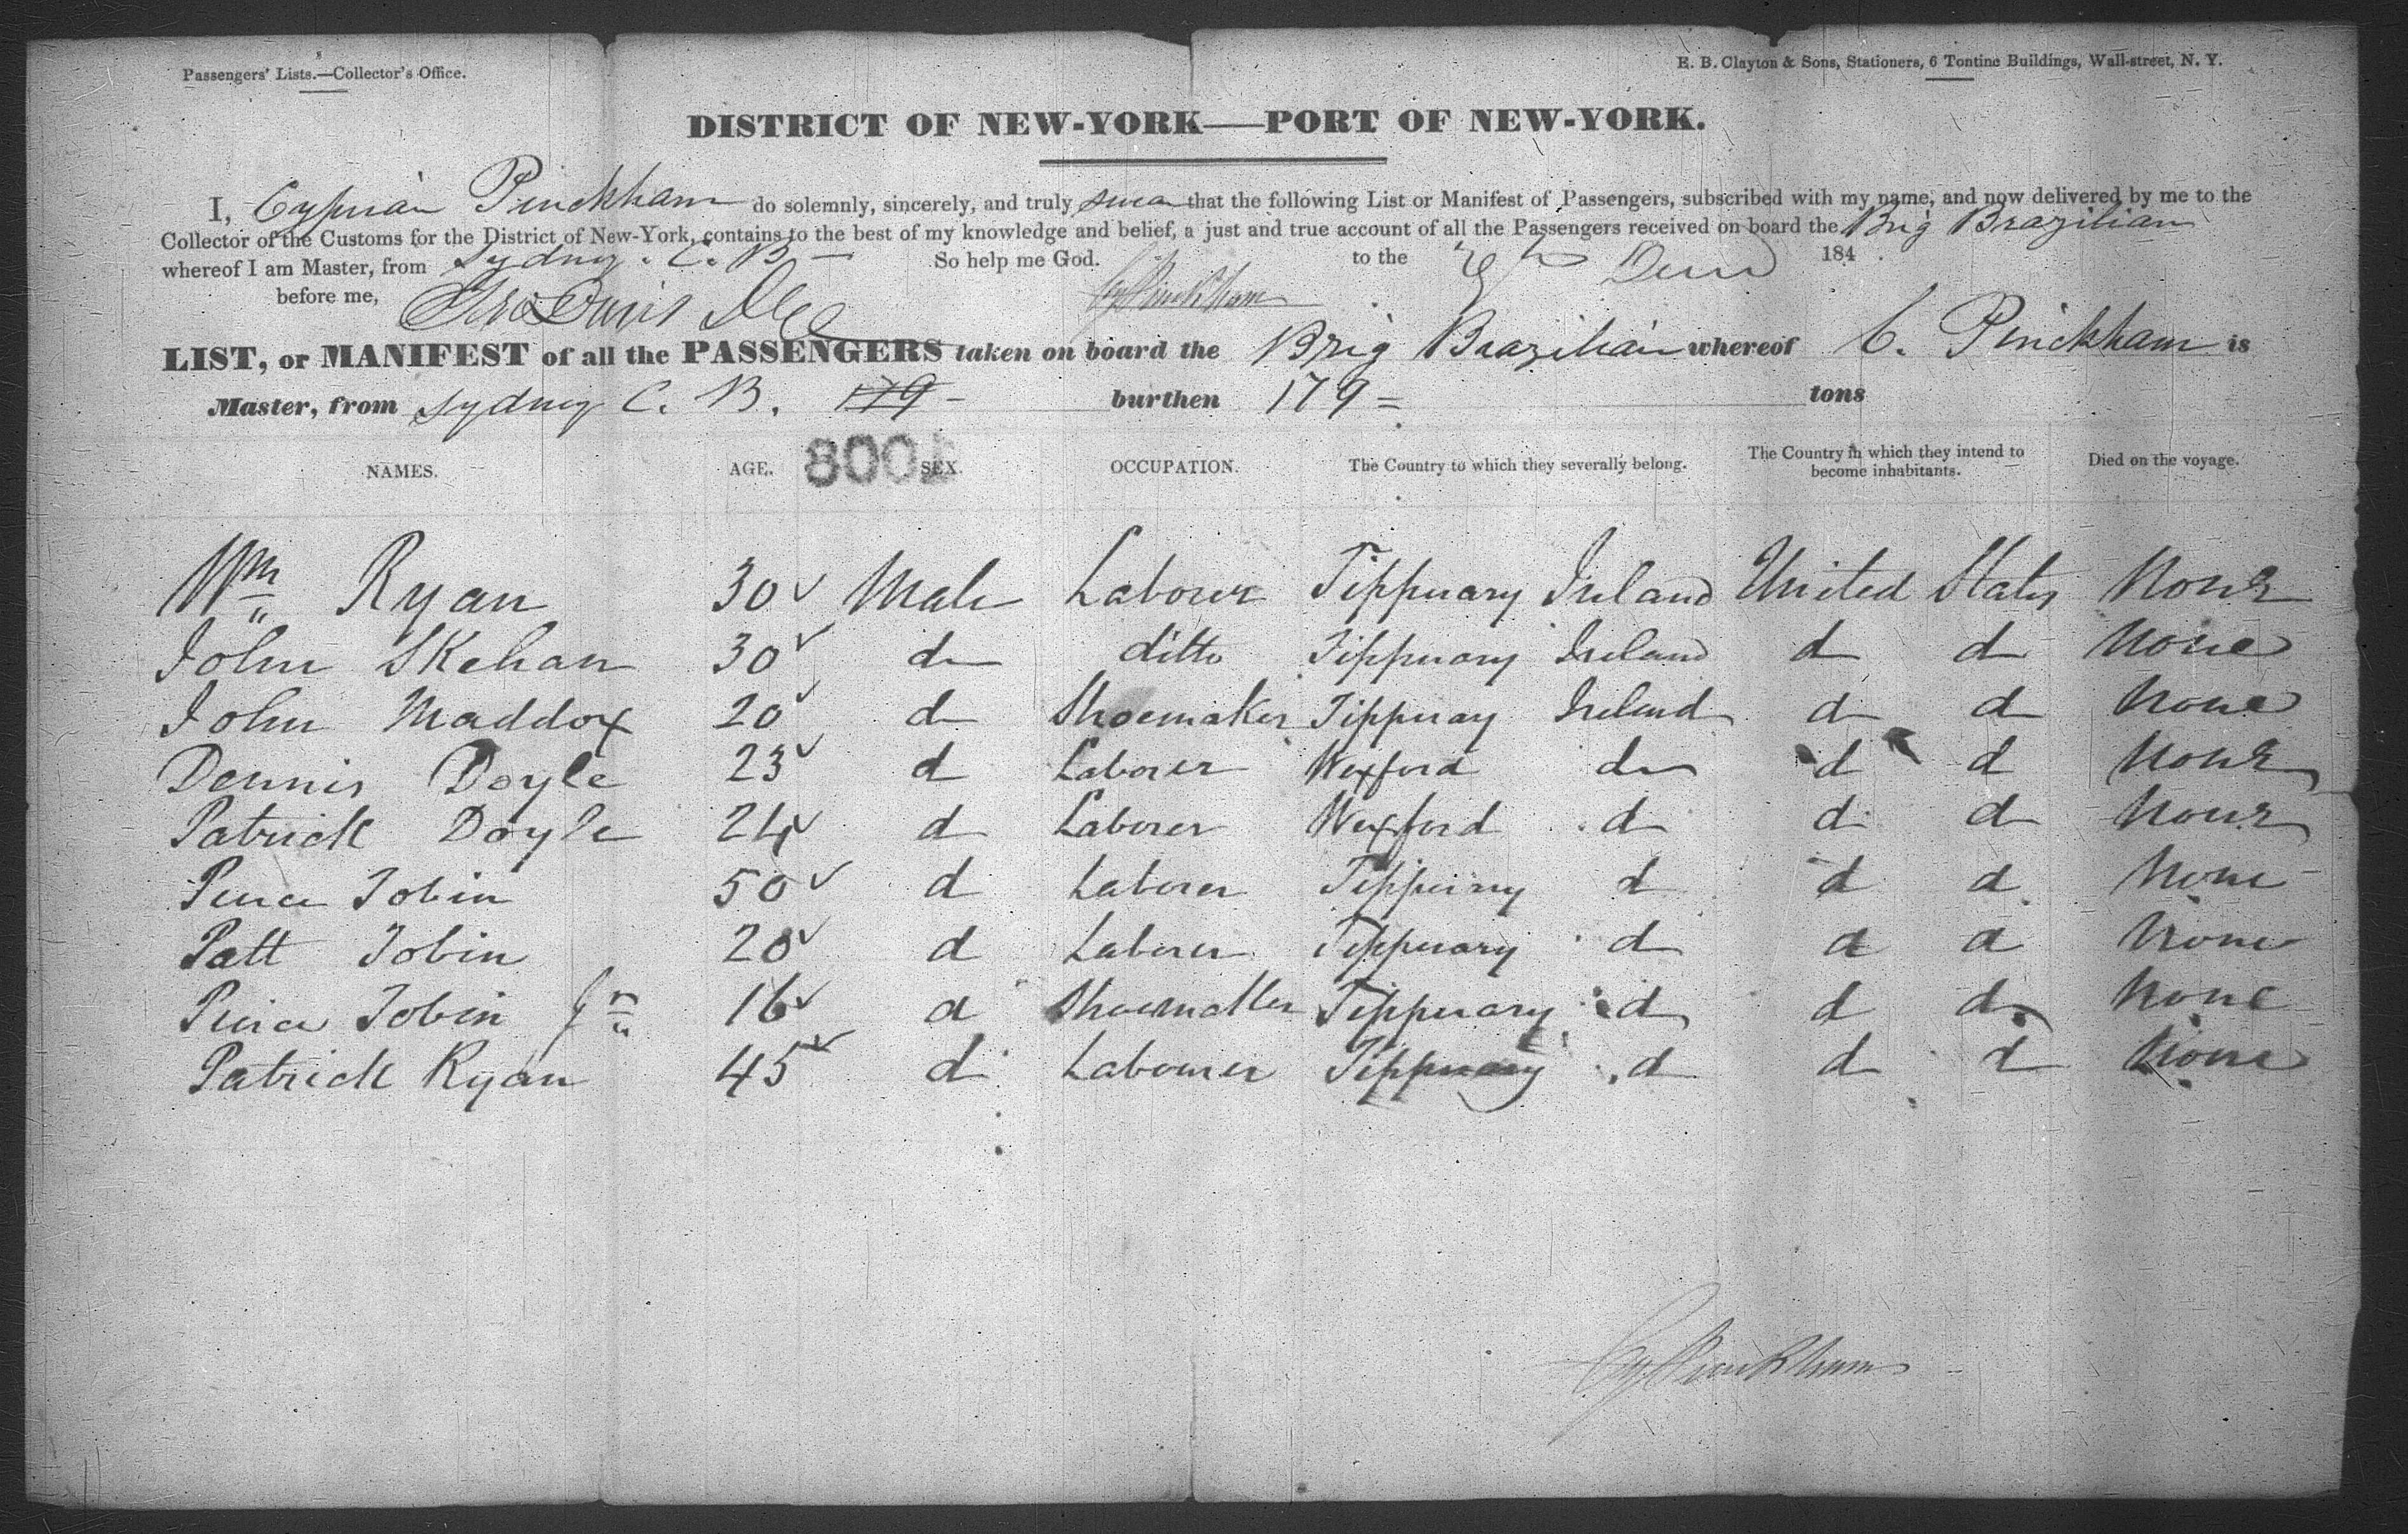 Passengers' Lists.—Collector's Office.
E. B. Clayton & Sons, Stationers, 6 Tontine Buildings, Wall-street, N. Y.
DISTRICT OF NEW-YORK—PORT OF NEW-YORK.
I, Cyprian Pinckham do solemnly, sincerely, and truly swear that the following List or Manifest of Passengers, subscribed with my name, and now delivered by me to the
Collector of the Customs for the District of New-York, contains to the best of my knowledge and belief, a just and true account of all the Passengers received on board the Brig Brazilian
whereof I am Master, from Sydney. C. B— So help me God. to the 184
before me, Cy Pinckham
LIST, or MANIFEST of all the PASSENGERS taken on board the Brig Brazilian whereof C. Pinckham is
Master, from Sydney C. B. 179 - burthen 179 = tons
8001
NAMES. AGE. SEX. OCCUPATION. The Country to which they severally belong. The Country in which they intend to become inhabitants. Died on the voyage.
Wm Ryan 30 Male Laborer Tippuary Ireland United States None
John Skehan 30 d ditto Tippuary Ireland d d None
John Maddox 20 d Shoemaker Tippuay Ireland d d None
Dennis Doyle 23 d Laborer Wexford d d d None
Patrick Doyle 24 d Laborer Wexford d d d None
Peirce Tobin 50 d Laborer Tippuary d d d None
Patt Tobin 20 d Laborer Tippuary d d d None
Peirce Tobin Jr 16 d Shoemaker Tippuary d d d None
Patrick Ryan 45 d Labourer Tippuary d d d None
Cy Pinckham